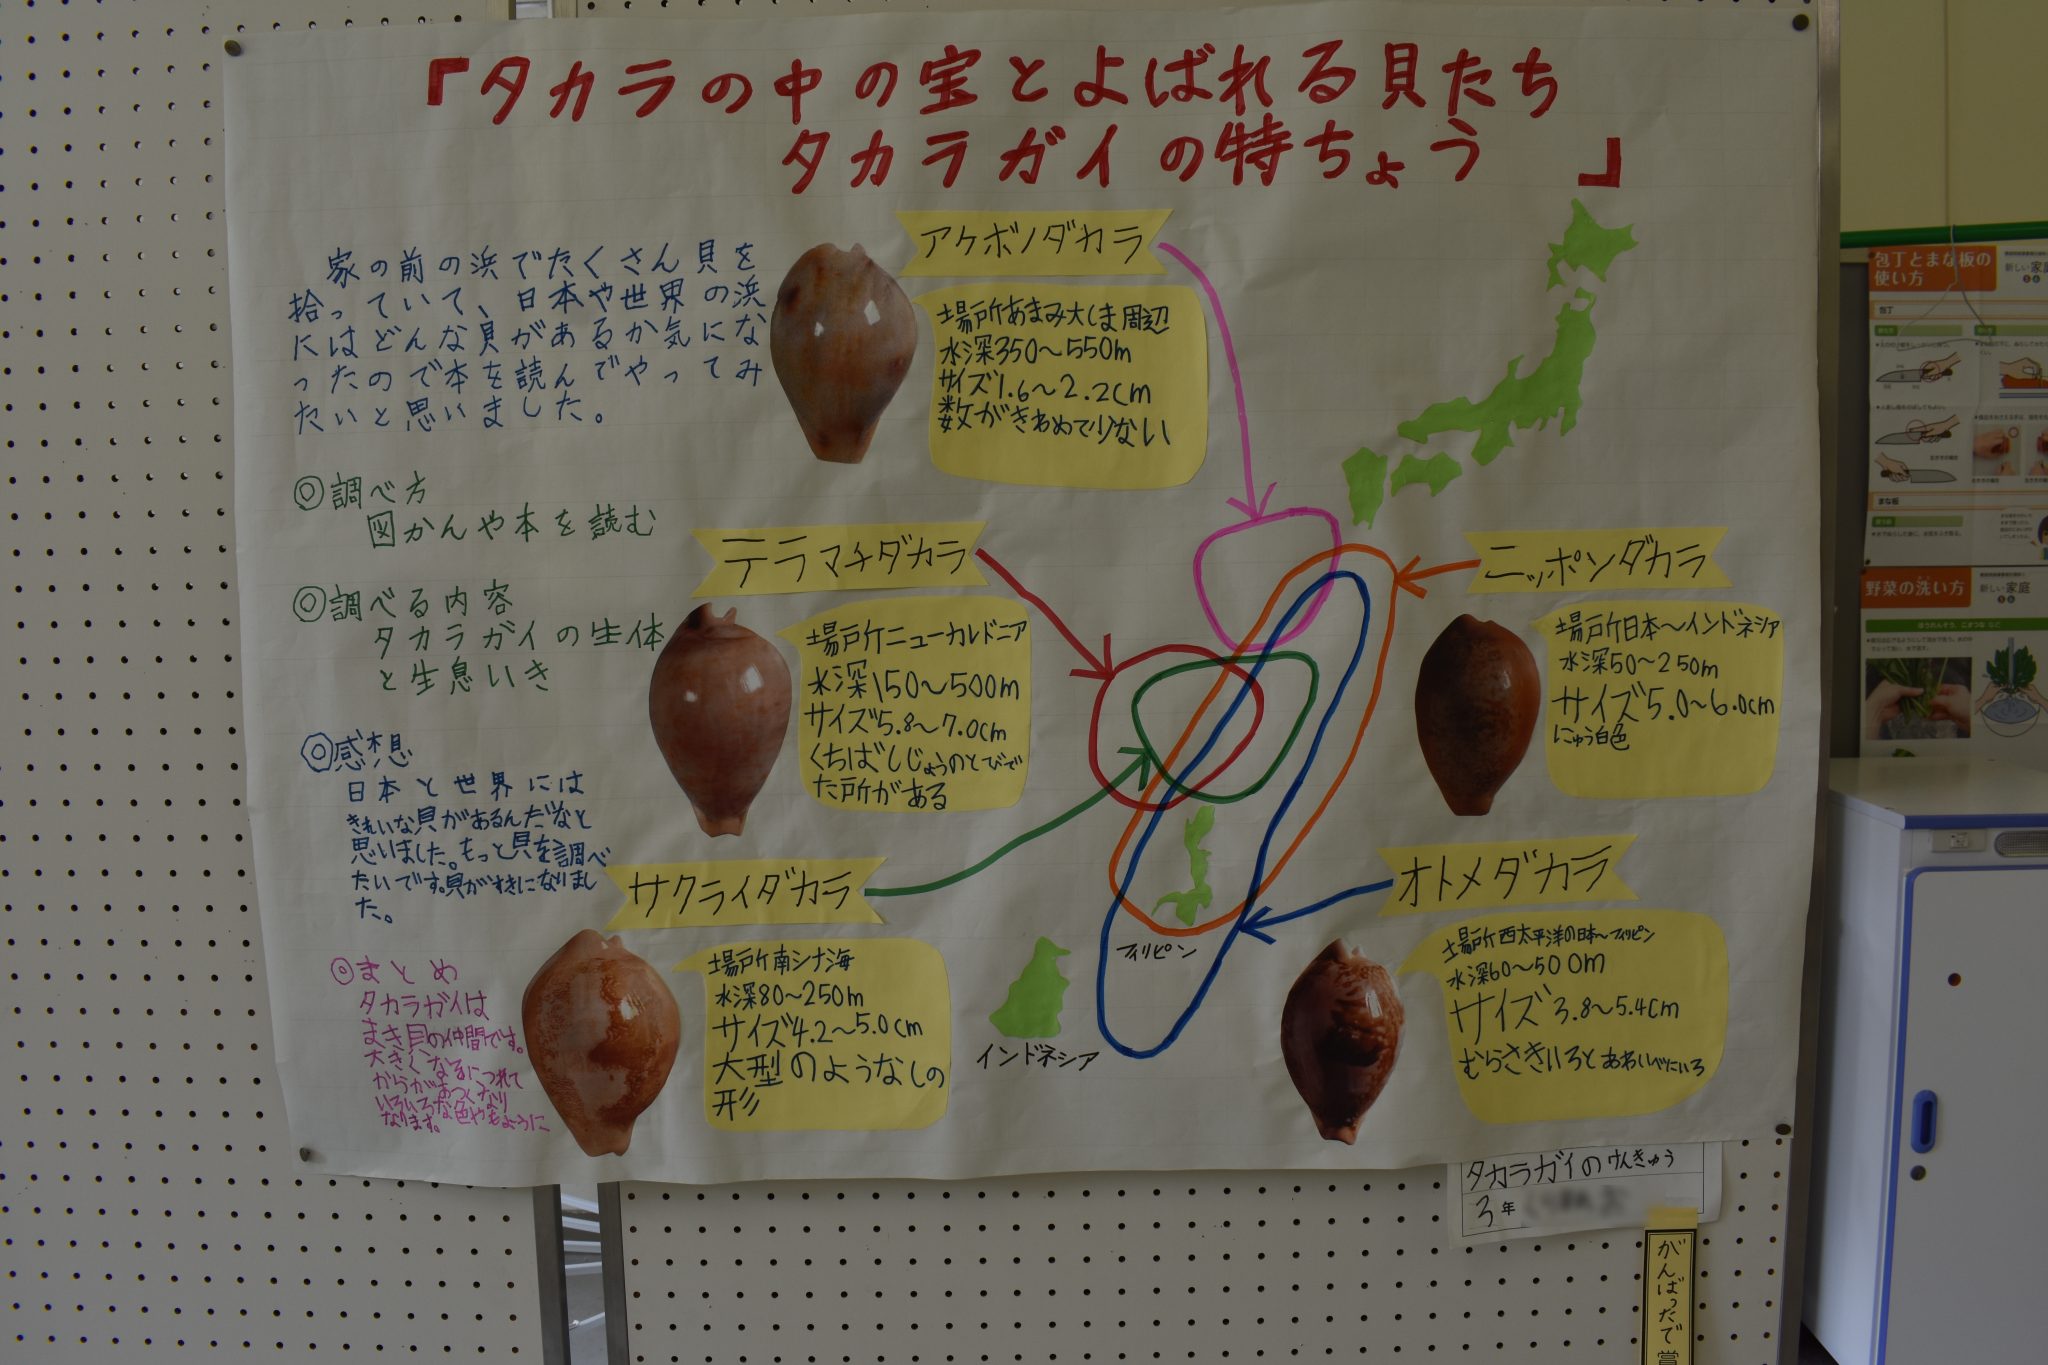 『タカラの中の宝とよばれる貝たち
タカラガイの特ちょう 』
家の前の浜でたくさん貝を
拾っていて、日本や世界の浜
にはどんな貝があるか気にな
ったので本を読んでやってみ
たいと思いました。
◎調べ方
図かんや本を読む
◎調べる内容
タカラガイの生体
と生息いき
◎感想
日本と世界には
きれいな貝があるんだなと
思いました。もっと貝を調べ
たいです。貝がすきになりまし
た。
◎まとめ
タカラガイは
まき貝の仲間です。
大きくなるにつれて
からがあつくなり
いろいろな色やもように
なります。
アケボノダカラ
場所あまみ大しま周辺
水深350〜550m
サイズ1.6〜2.2cm
数がきわめて少ない
テラマチダカラ
場所ニューカレドニア
水深150〜500m
サイズ5.8〜7.0cm
くちばしじょうのとびで
た所がある
サクライダカラ
場所南シナ海
水深80〜250m
サイズ4.2〜5.0cm
大型のようなしの
形
ニッポンダカラ
場所日本〜インドネシア
水深50〜250m
サイズ5.0〜6.0cm
にゅう白色
オトメダカラ
場所西太平洋の日本〜フィリピン
水深60〜500m
サイズ3.8〜5.4cm
むらさきいろとあわいべにいろ
フィリピン
インドネシア
タカラガイのけんきゅう
3年
がんばったで賞
包丁とまな板の
使い方
新しい家庭
包丁
まな板
野菜の洗い方
新しい家庭
ほうれんそう、こまつな など